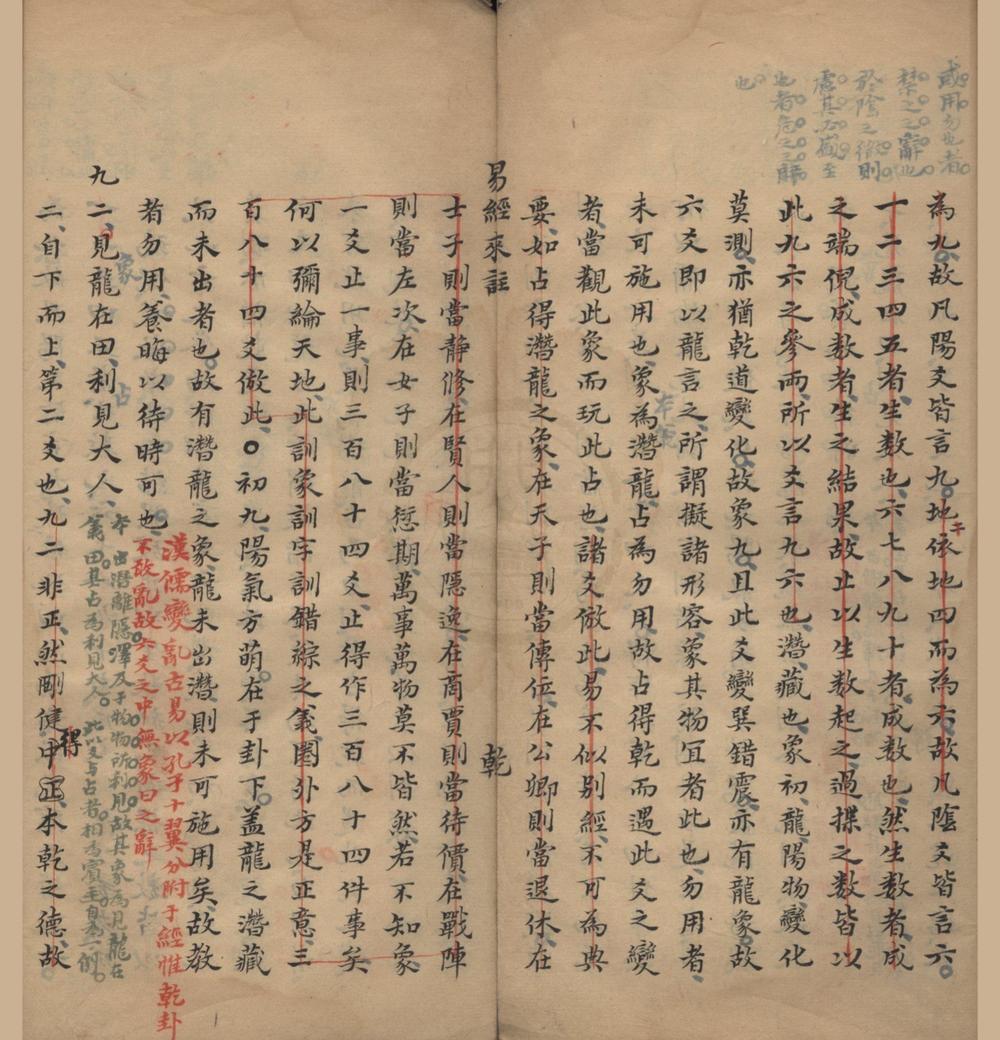 或用勿也者
禁之之辭也
於陰之微則
慮其
也者危之之辭
也
為九故凡陽爻皆言九地依地四而為六故凡陰爻皆言六
于
一二三四五者生數也六七八九十者成數也然生數者成
之端倪成數者生之結果故止以生數起之過揲之數皆以
此九六之參兩所以爻言九六也潛藏也象初龍陽物變化
莫測亦猶乾道變化故象九且此爻變巽錯震亦有龍象故
六爻即以龍言之所謂擬諸形容象其物宜者此也勿用者
未可施用也象為潛龍占為勿用故占得乾而遇此爻之變
者當觀此象而玩此占也諸爻倣此易不似別經不可為典
要如占得潛龍之象在天子則當傳位在公卿則當退休在
易經來註
乾
士子則當靜修在賢人則當隱逸在商賈則當待價在戰陣
則當左次在女子則當愆期萬事萬物莫不皆然若不知象
一爻止一事則三百八十四爻止得作三百八十四件事矣
何以彌綸天地此訓象訓字訓錯綜之義圈外方是正意三
百八十四爻倣此○初九陽氣方萌在于卦下蓋龍之潛藏
而未出者也故有潛龍之象龍未出潛則未可施用矣故教
者勿用養晦以待時可也
漢儒變亂古易以孔子十翼分附于經惟乾卦
不敢亂故六爻之中無象曰之辭
九二見龍在田利見大人
本出潛離隱澤及于物物所利見故其象為見龍在
義田其占為利見大人此以爻與占者相為賓主自為一例
二自下而上第二爻也九二非正然剛健中正本乾之德故
得